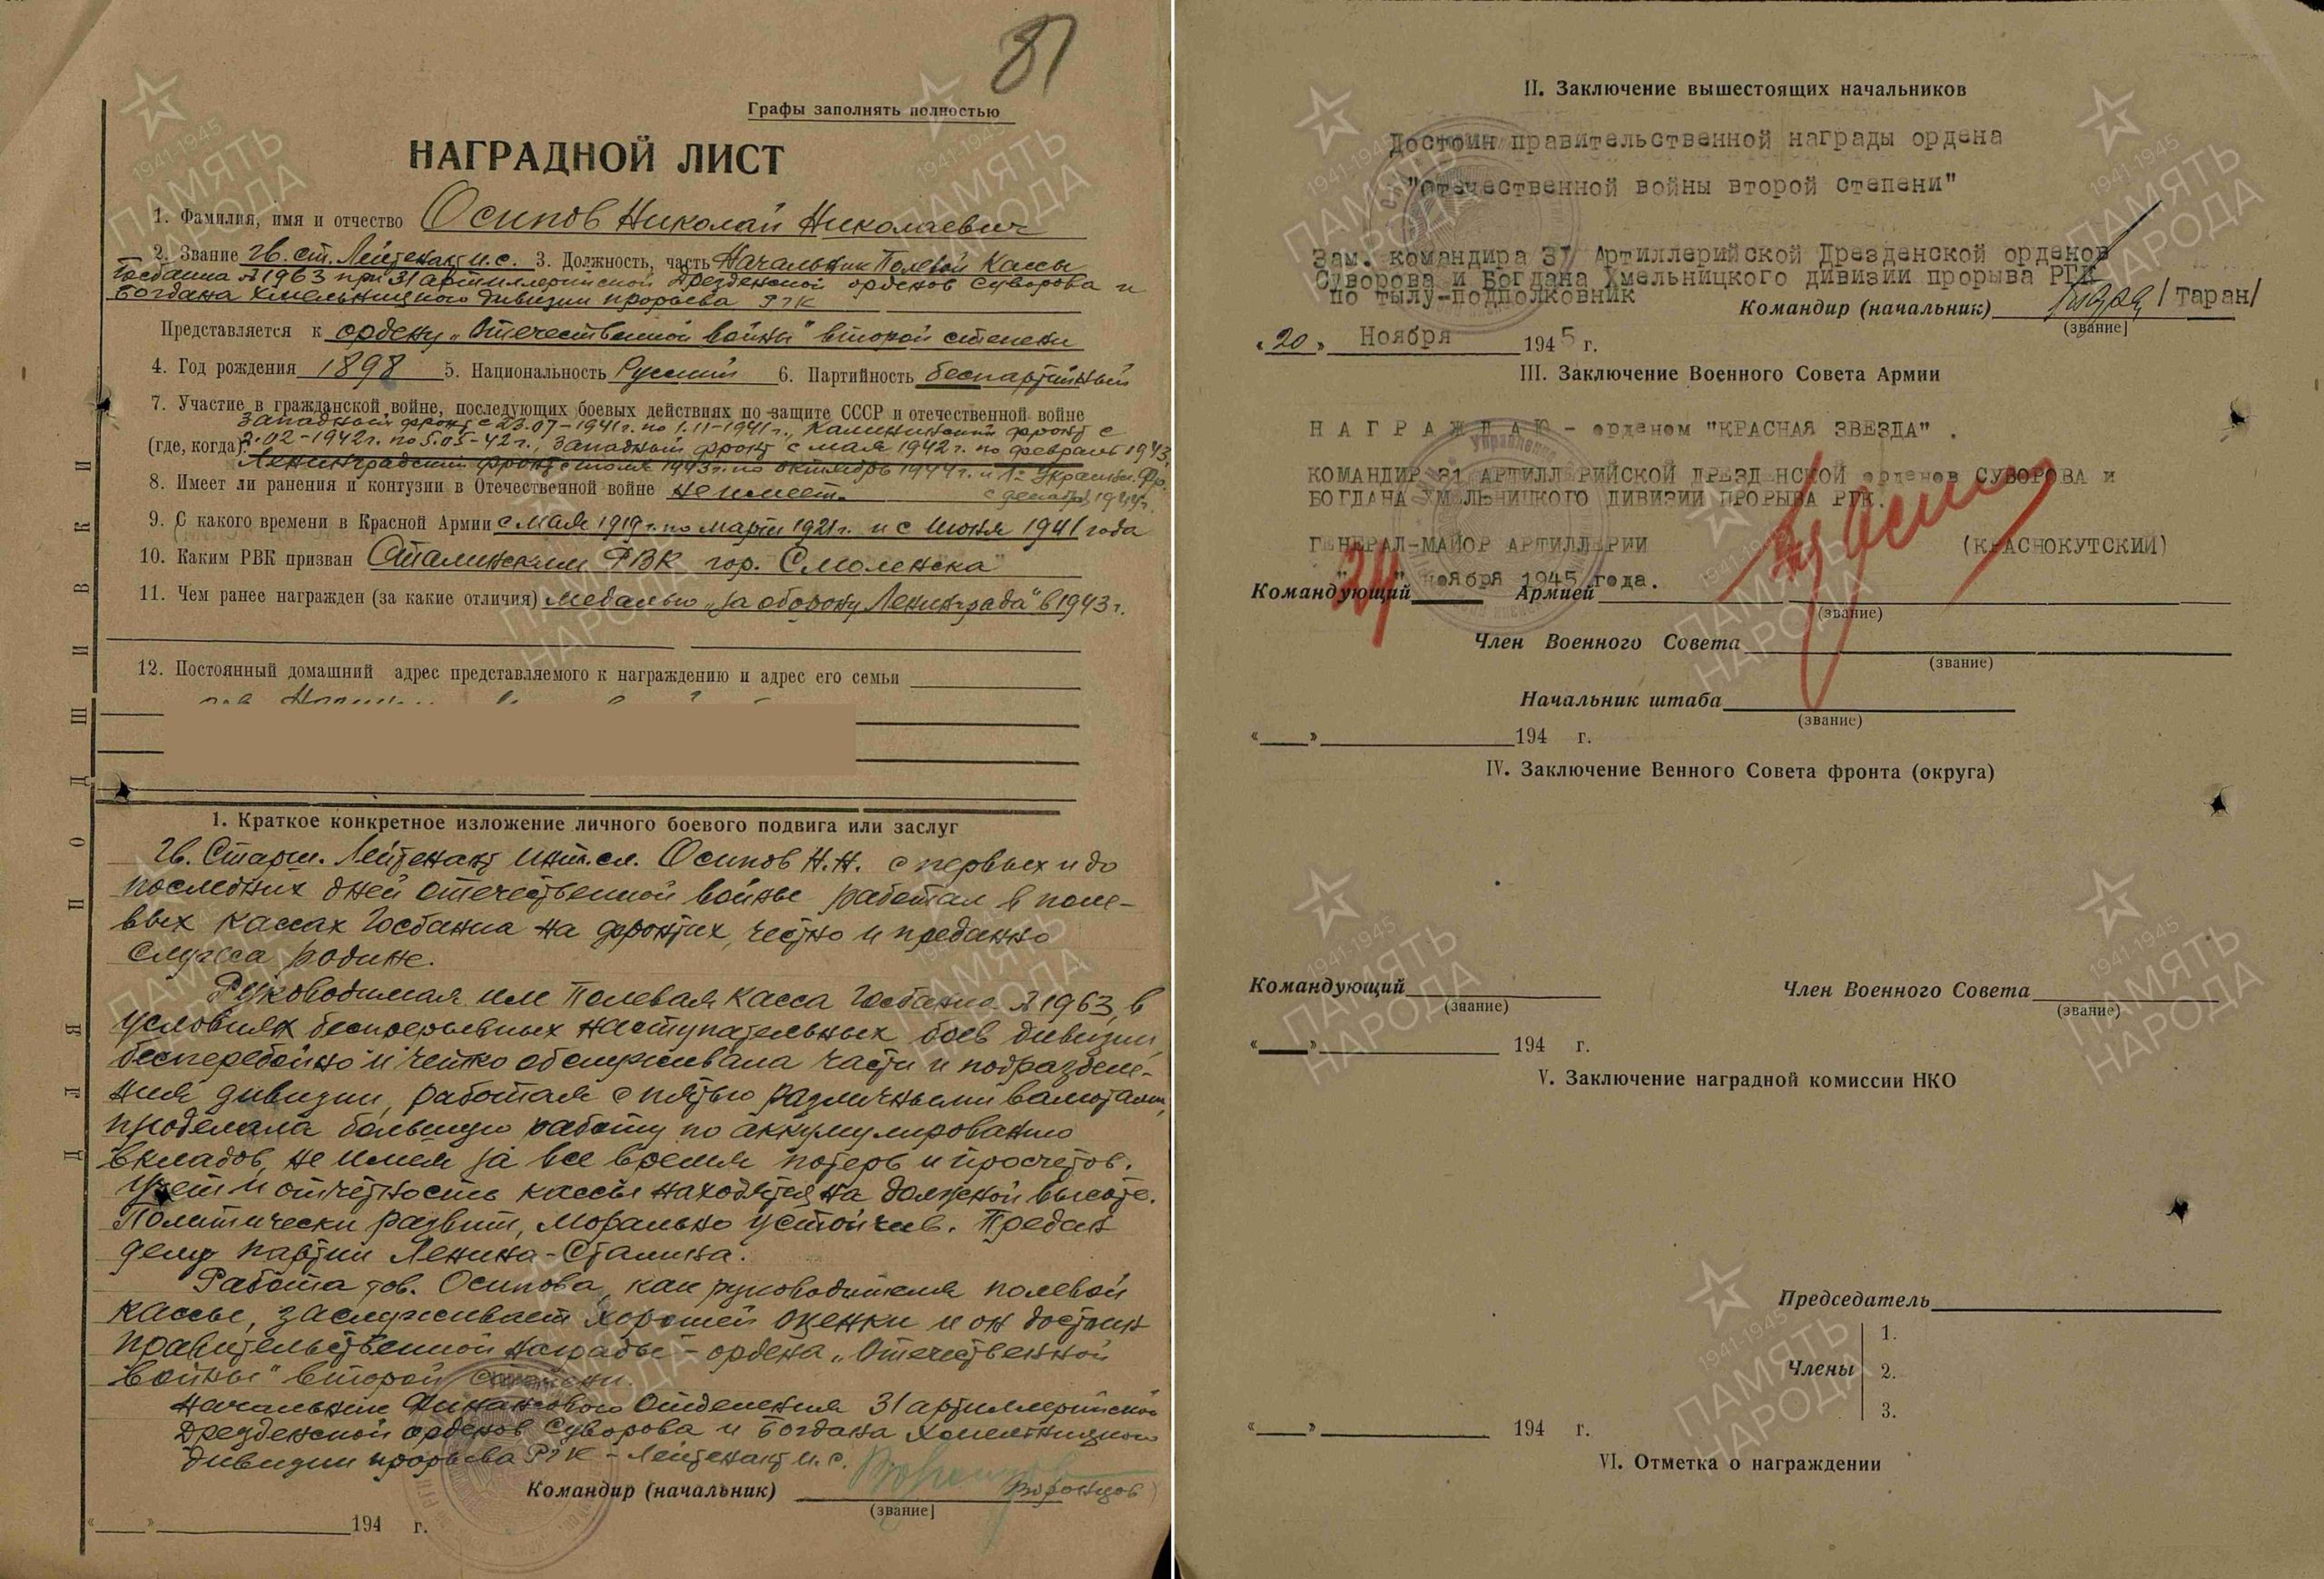 81
Графы заполнять полностью
НАГРАДНОЙ ЛИСТ
1. Фамилия, имя и отчество Осипов Николай Николаевич
2. Звание Гв. ст. Лейтенант и.с. 3. Должность, часть Начальник Полевой Кассы
Госбанка №1963 при 31 артиллерийской Дрезденской орденов Суворова и
Богдана Хмельницкого дивизии прорыва РГК
Представляется к ордену „Отечественной войны" второй степени
4. Год рождения 1898 5. Национальность Русский 6. Партийность беспартийный
7. Участие в гражданской войне, последующих боевых действиях по защите СССР и отечественной войне
Западный фронт с 23.07-1941г. по 1.11-1941г., Калининский фронт с
(где, когда) 2.02-1942г. по 5.05-42г., Западный фронт с мая 1942г. по февраль 1943,
Ленинградский фронт с июля 1943г. по октябрь 1944г. и 1-Украин. Фр.
с декабря 1944г.
8. Имеет ли ранения и контузии в Отечественной войне не имеет.
9. С какого времени в Красной Армии с мая 1919г. по март 1921г. и с Июня 1941 года
10. Каким РВК призван Сталинским РВК гор. Смоленска
11. Чем ранее награжден (за какие отличия) медалью „за оборону Ленинграда" в 1943г.
12. Постоянный домашний адрес представляемого к награждению и адрес его семьи
ДЛЯ ПОДШИВКИ
1. Краткое конкретное изложение личного боевого подвига или заслуг
Гв. Старш. Лейтенант инт.сл. Осипов Н.Н. с первых и до
последних дней отечественной войны работал в поле-
вых кассах Госбанка на фронтах, честно и преданно
служа родине.
Руководимая им Полевая касса Госбанка №1963, в
условиях беспрерывных наступательных боев дивизии,
бесперебойно и четко обслуживала части и подразделе-
ния дивизии, работая с пятью различными валютами,
проделала большую работу по аккумулированию
вкладов, не имея за все время потерь и просчетов.
Учет и отчетность кассы находятся на должной высоте.
Политически развит, морально устойчив. Предан
делу партии Ленина-Сталина.
Работа тов. Осипова, как руководителя полевой
кассы, заслуживает хорошей оценки и он достоин
правительственной награды - ордена „Отечественной
войны" второй степени.
Начальник Финансового Отделения 31 артиллерийской
Дрезденской орденов Суворова и Богдана Хмельницкого
дивизии прорыва РГК - Лейтенант и.с.
Командир (начальник) Воронцов
(звание]
« » 194 г.
II. Заключение вышестоящих начальников
Достоин правительственной награды ордена
"Отечественной войны второй степени"
Зам. командира 31 Артиллерийской Дрезденской орденов
Суворова и Богдана Хмельницкого дивизии прорыва РГК
по тылу-подполковник
Командир (начальник) /Таран/
(звание]
«20» Ноября 1945 г.
III. Заключение Военного Совета Армии
НАГРАЖДАЮ - орденом "КРАСНАЯ ЗВЕЗДА".
КОМАНДИР 31 АРТИЛЛ РИЙСКОЙ ДРЕЗД НСКОЙ орденов СУВОРОВА и
БОГДАНА ХМ ЛЬНИЦКОГО ДИВИЗИИ ПРОРЫВА РГК.
ГЕНЕРАЛ-МАЙОР АРТИЛЛЕРИИ (КРАСНОКУТСКИЙ)
"24" ноября 1945 года.
Командующий Армией
(звание)
Член Военного Совета
(звание)
Начальник штаба
(звание)
« » 194 г.
IV. Заключение Венного Совета фронта (округа)
Командующий Член Военного Совета
(звание) (звание)
« » 194 г.
V. Заключение наградной комиссии НКО
Председатель
Члены
1.
2.
3.
« » 194 г.
VI. Отметка о награждении
1941-1945
ПАМЯТЬ
НАРОДА